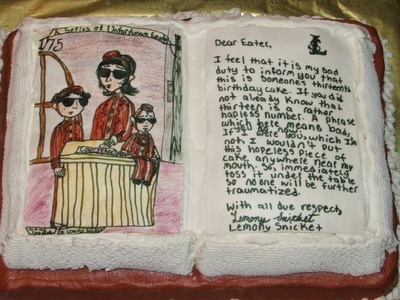 A Series of Unfortunate
175
Dear Eater,
LS
I feel that it is my sad
duty to inform you that
this is someones thirteenth
birthday cake. If you did
not already know that
thirteen is a rather
hapless number. A phrase
which here means bad,
If I were you, which I'm
not. I wouldn't put
this hopeless piece of
cake anywhere near my
mouth. So, immediately
toss it under the table
so no one will be further
traumatized.
With all due respect,
Lemony Snicket
Lemony Snicket